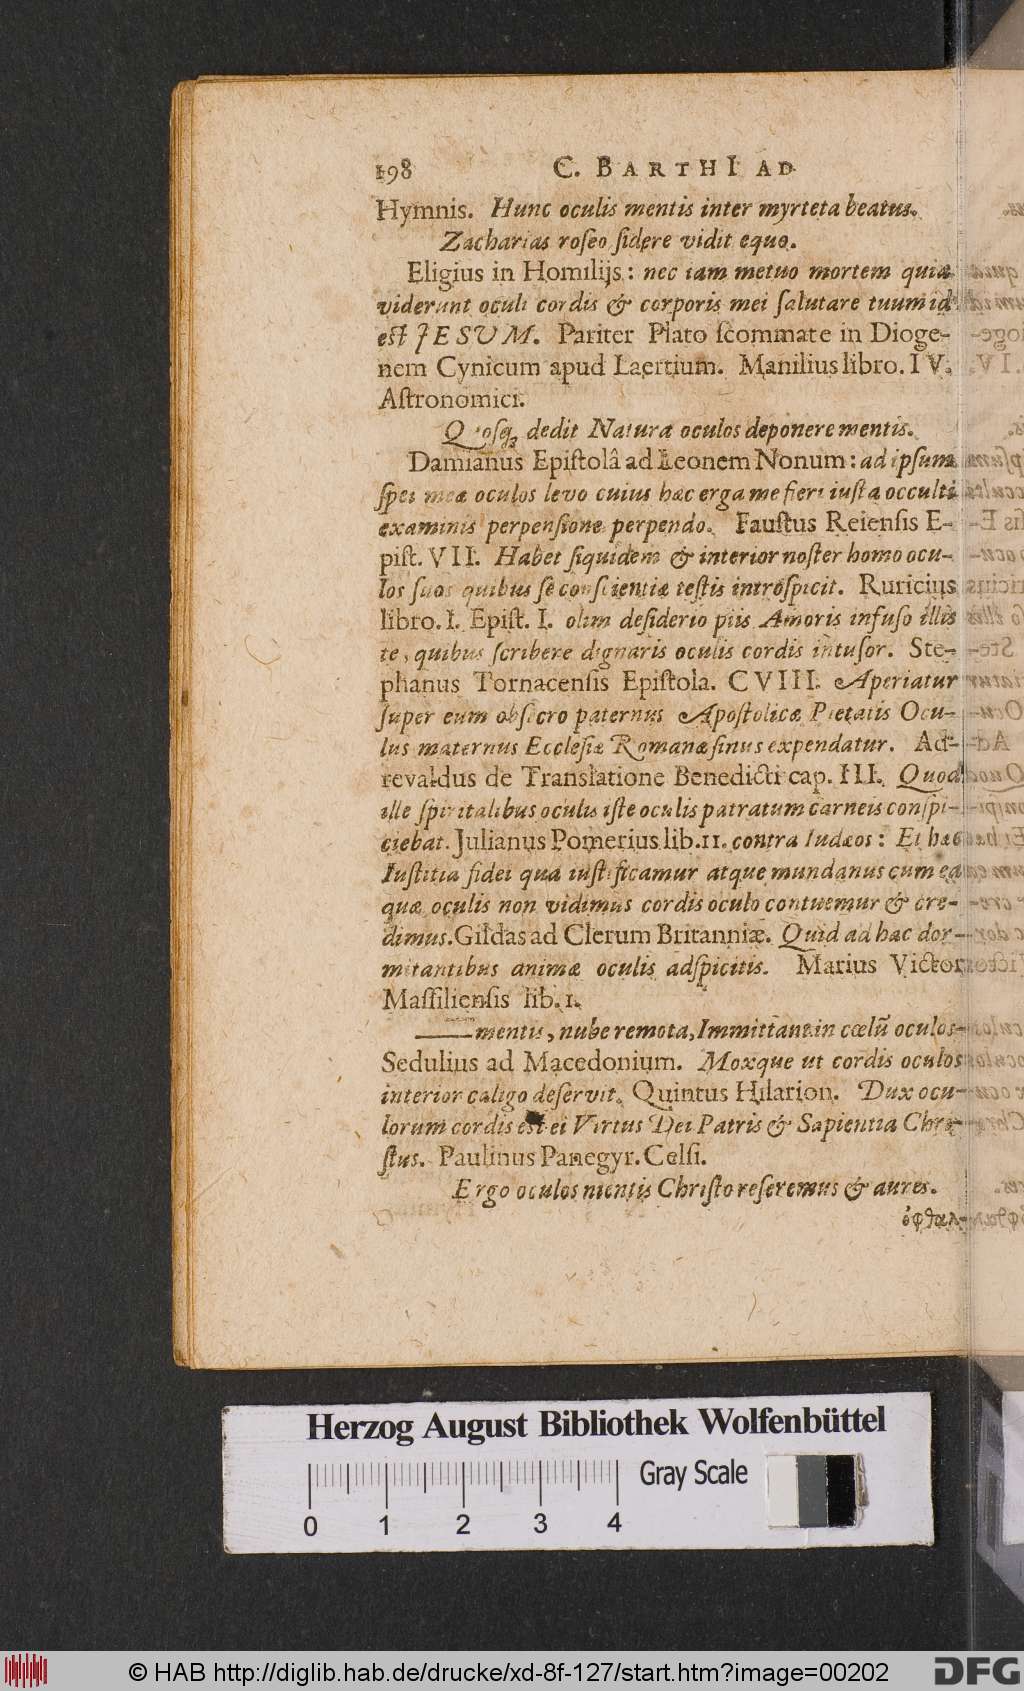 198 C. BARTHI AD
Hymnis. Hunc oculis mentis inter myrteta beatus.
Zacharias roseo sidere vidit equo.
Eligius in Homilijs: nec iam metuo mortem quia
viderunt oculi cordis & corporis mei salutare tuum id
est JESUM. Pariter Plato scommate in Dioge-
nem Cynicum apud Laertium. Manilius libro. IV.
Astronomici.
Quosq; dedit Natura oculos deponere mentis.
Damianus Epistolâ ad Leonem Nonum: ad ipsum
spei meæ oculos levo cuius hac erga me fieri iusta occulti
examinis perpensione perpendo. Faustus Reiensis E-
pist. VII. Habet siquidem & interior noster homo ocu-
los suos quibus se conscientiæ testis introspicit. Ruricius
libro. I. Epist. I. olim desiderio piis Amoris infuso illis
te, quibus scribere dignaris oculis cordis intusor. Ste-
phanus Tornacensis Epistola. CVIII. Aperiatur
super eum obsecro paternus Apostolicæ Pietatis Ocu-
lus maternus Ecclesiæ Romanæ sinus expendatur. Ad-
revaldus de Translatione Benedicti cap. III. Quod
ille spiritalibus oculis iste oculis patratum carneis conspi-
ciebat. Julianus Pomerius lib. II. contra Iudæos: Et hæc
Iustitia fidei qua iustificamur atque mundanus cum ea
quæ oculis non vidimus cordis oculo contuemur & cre-
dimus. Gildas ad Clerum Britanniæ. Quid ad hac dor-
mitantibus animæ oculis adspicitis. Marius Victor
Massiliensis lib. I.
—— mentis, nube remota, Immittant in cœlũ oculos-
Sedulius ad Macedonium. Moxque ut cordis oculos
interior caligo deservit. Quintus Hilarion. Dux ocu-
lorum cordis est ei Virtus Dei Patris & Sapientia Chri-
stus. Paulinus Panegyr. Celsi.
Ergo oculos mentis Christo reseremus & aures.
ὀφθαλ-
Herzog August Bibliothek Wolfenbüttel
Gray Scale
0 1 2 3 4
© HAB http://diglib.hab.de/drucke/xd-8f-127/start.htm?image=00202
DFG